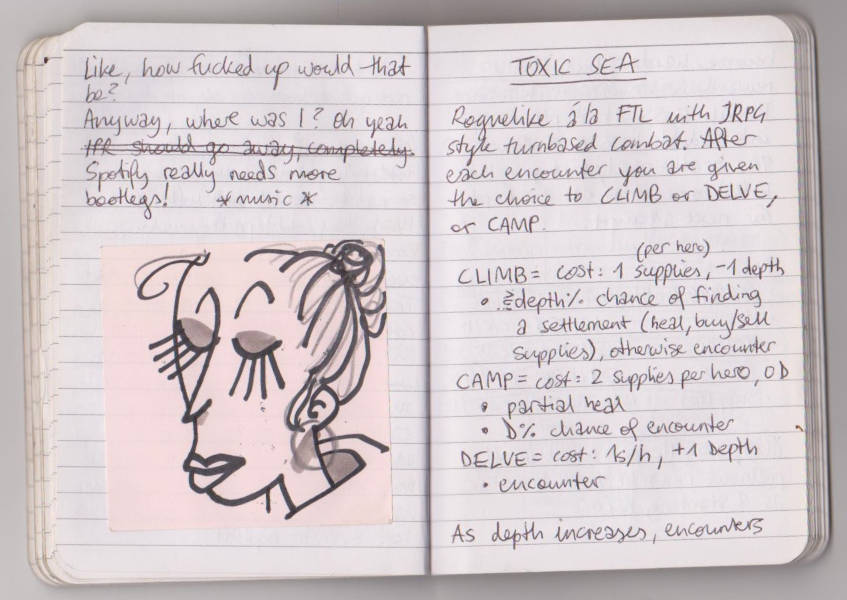 Like, how fucked up would that
be?
Anyway, where was I? Oh yeah
should go away, completely.
Spotify really needs more
bootlegs! *music*
TOXIC SEA
Roguelike á la FTL with JRPG
style turnbased combat. After
each encounter you are given
the choice to CLIMB or DELVE,
or CAMP.
(per hero)
CLIMB = cost: 1 supplies, -1 depth
• depth% chance of finding
a settlement (heal, buy/sell
supplies), otherwise encounter
CAMP = cost: 2 supplies per hero, 0D
• partial heal
• D% chance of encounter
DELVE = cost: 1s/h, +1 Depth
• encounter
As depth increases, encounters